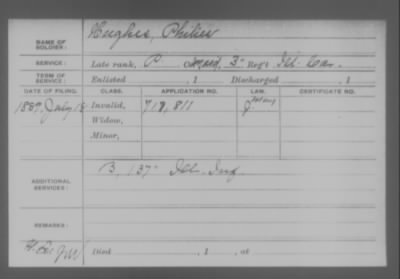 NAME OF SOLDIER: Hughes, Philip
SERVICE: Late rank, P Reg't Ill. Cav.
TERM OF SERVICE: Enlisted , 1 Discharged , 1
DATE OF FILING. CLASS. APPLICATION NO. LAW. CERTIFICATE NO.
1889, July 18 Invalid, 718,811
Widow,
Minor,
ADDITIONAL SERVICES: B, 137" Ill. Inf.
REMARKS:
Died , 1 , at